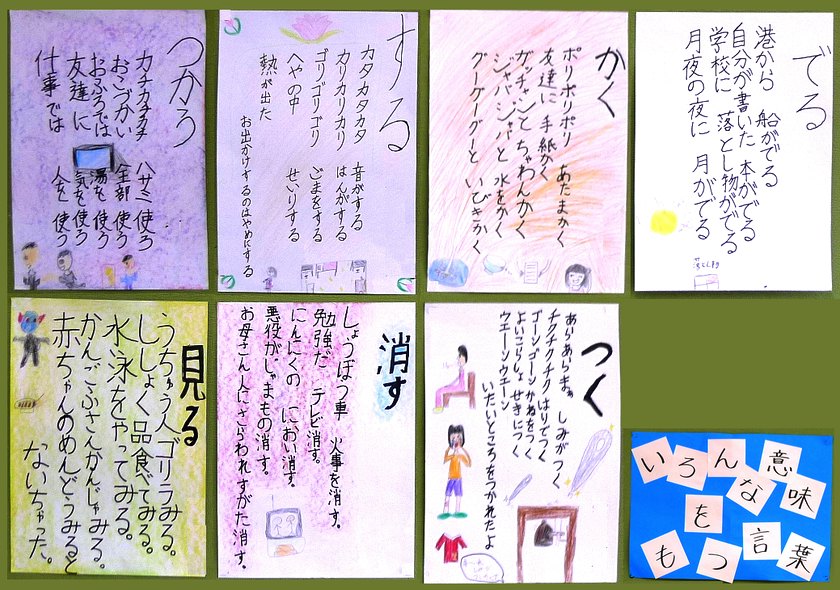 でる
港から 船がでる
自分が書いた 本がでる
学校に 落とし物がでる
月夜の夜に 月がでる
かく
ポリポリポリ あたまかく
友達に 手紙かく
ガッチャンと ちゃわんかく
ジャバジャバと 水をかく
グーグーグーと いびきかく
する
カタカタカタ 音がする
カリカリカリ はんがする
ゴリゴリゴリ ごまをする
へやの中 せいりする
熱が出た
お出かけするのはやめにする
つかう
カチカチカチ ハサミ使う
おこづかい 全部使う
おふろでは 湯を使う
友達に 気を使う
仕事では 人を使う
つく
あらあらまぁ しみがつく
チクチクチク はりでつく
ゴーンゴーン かねをつく
よいこらしょ せきにつく
ウエーンウエーン
いたいところをつかれたよ
消す
しょうぼう車 火事を消す。
勉強だ テレビ消す。
にんにくの におい消す。
悪役がじゃまもの消す。
お母さん人にさらわれすがた消す。
見る
うちゅう人ゴリラみる。
ししょく品食べてみる。
水泳をやってみる。
かんごふさんかんじゃみる。
赤ちゃんのめんどうみると
ないちゃった。
いろんな意味
を
もつ言葉